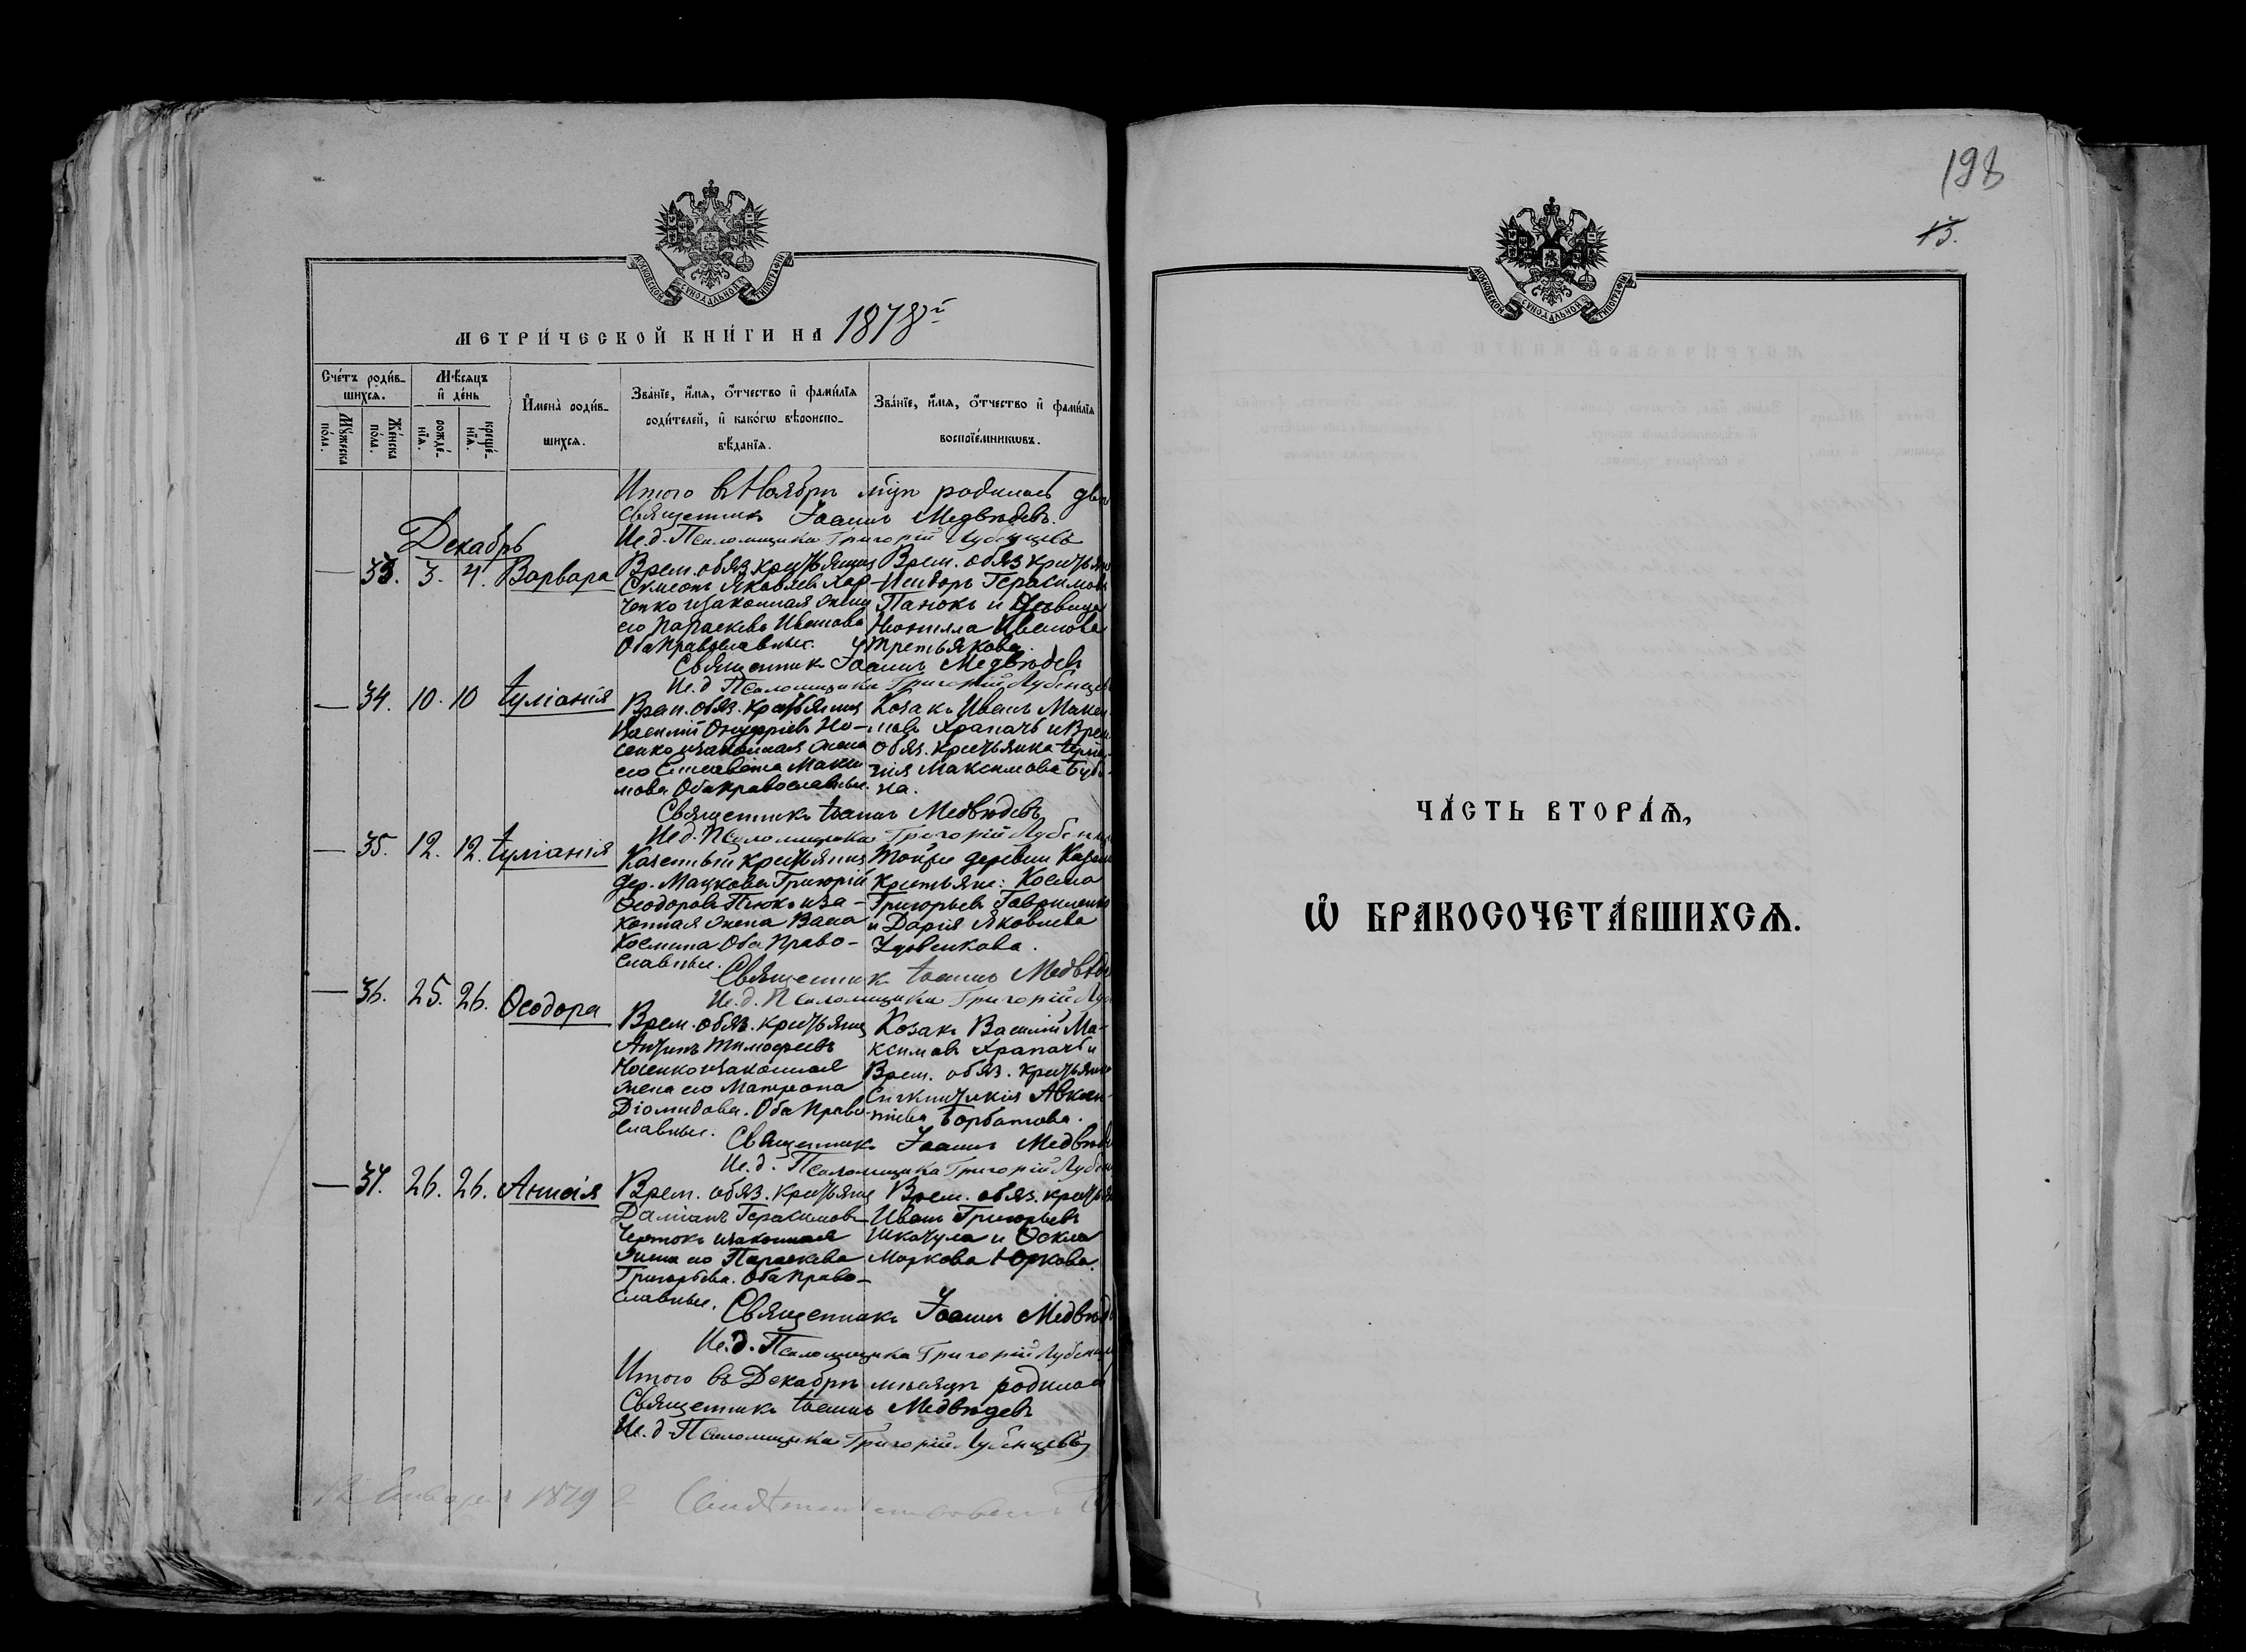 МОСКОВСКОЙ СѴНОДАЛЬНОЙ ТИПОГРАФІИ
МЕТРИ́ЧЕСКОЙ КНИ́ГИ НА 1878 й
Сче́тъ роди́в-
шихсѧ.
Мѣ́сяцъ
и҆ де́нь
Мꙋ́жеска
по́ла.
Же́нска
по́ла.
рожде́-
нїѧ.
креще́-
нїѧ.
И҆мена̀ роди́в-
шихсѧ.
Зва́нїе, и҆́мѧ, ѻ҆́тчество и҆ фами́лїѧ
роди́телей, и҆ како́гѡ вѣроиспо-
вѣ́данїѧ.
Зва́нїе, и҆́мѧ, ѻ҆́тчество и҆ фами́лїѧ
воспрїе́мникѡвъ.
Итого въ Ноябрѣ м҃цѣ родилось
Священникъ Іоаннъ Медвѣдевъ.
Ис.д. Псаломщика Григорій Лубенцевъ
Декабрь
— 33. 3. 4. Варвара
Врем. обяз. крестьянинъ
Сѵмеонъ Яковлевъ Хар-
ченко и законная жена
его Параскева Иванова
Оба православные.
Врем. обяз. крестьян
Исидоръ Герасимовъ
Панокъ и
Иванова
Третьякова.
Священникъ Іоаннъ Медвѣдевъ
Ис.д Псаломщика Григорій Лубенцевъ
— 34. 10. 10 Іуліанія
Врем. обяз. крестьянинъ
Василій Онуфріевъ Но-
сенко и законная жена
его Елисавета Макси
мова Оба православные.
Козакъ Иванъ Макси
мовъ Храпачъ и Врем.
обяз. крестьянка
Максимова
на.
Священникъ Іоаннъ Медвѣдевъ
Ис.д. Псаломщика Григорій Лубенцев
— 35. 12. 12. Іуліанія
Казенный крестьянинъ
дер. Мацковки Григорій
Ѳеодоровъ и за-
конная жена Васса
Космина Оба право-
славные.
Тойже деревни Казен
крестьяне: Косма
Григорьевъ Гавриленко
и Дарія Яковлева
Удовенкова.
Священникъ Іоаннъ Медвѣде
Ис.д. Псаломщика Григорій Лу
— 36. 25. 26. Ѳеодора
Врем. обяз. крестьянинъ
Антипъ Тимоѳеевъ
Носенко и законная
жена его Матрона
Діомидова. Оба право-
славные.
Козакъ Василій Ма-
ксимовъ Храпачъ и
Врем. обяз. крестьянка
Авксен-
тіева Борбатова.
Священникъ Іоаннъ Медвѣде
Ис.д. Псаломщика Григорій Лубен
— 37. 26. 26. Анисія
Врем. обяз. крестьянинъ
Даміанъ Герасимовъ
Чертокъ и законная
жена его Параскева
Григорьева. Оба право-
славные.
Врем. обяз. крестья
Иванъ Григорьевъ
Шкатула и Ѳекла
Маркова Юркова.
Священникъ Іоаннъ Медвѣд
Ис.д. Псаломщика Григорій Лубенце
Итого въ Декабрѣ мѣсяцѣ родилось
Священникъ Іоаннъ Медвѣдевъ
Ис.д Псаломщика Григорій Лубенцевъ
12 Января 1879 г Свидѣтельствовалъ
198
13.
МОСКОВСКОЙ СѴНОДАЛЬНОЙ ТИПОГРАФІИ
ЧА́СТЬ ВТОРА́Ѧ,
Ѡ҆ БРАКОСОЧЕТА́ВШИХСѦ.